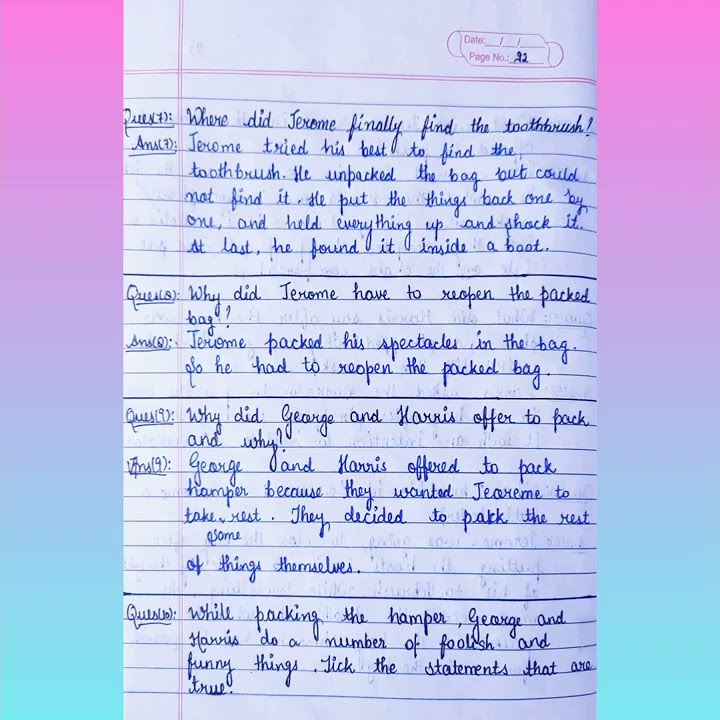 Date: __/__/__
Page No.: 22
Ques(7): Where did Jerome finally find the toothbrush?
Ans(7): Jerome tried his best to find the
toothbrush. He unpacked the bag but could
not find it. He put the things back one by
one, and held everything up and shock it.
At last, he found it inside a boot.
Ques(8): Why did Jerome have to reopen the packed
bag?
Ans(8): Jerome packed his spectacles in the bag.
So he had to reopen the packed bag.
Ques(9): Why did George and Harris offer to pack
and why?
Ans(9): George and Harris offered to pack
hamper because they wanted Jeoreme to
take rest. They decided to pakk the rest
some
of things themselves.
Ques(10): While packing the hamper, George and
Harris do a number of foolish and
funny things. Tick the statements that are
true.